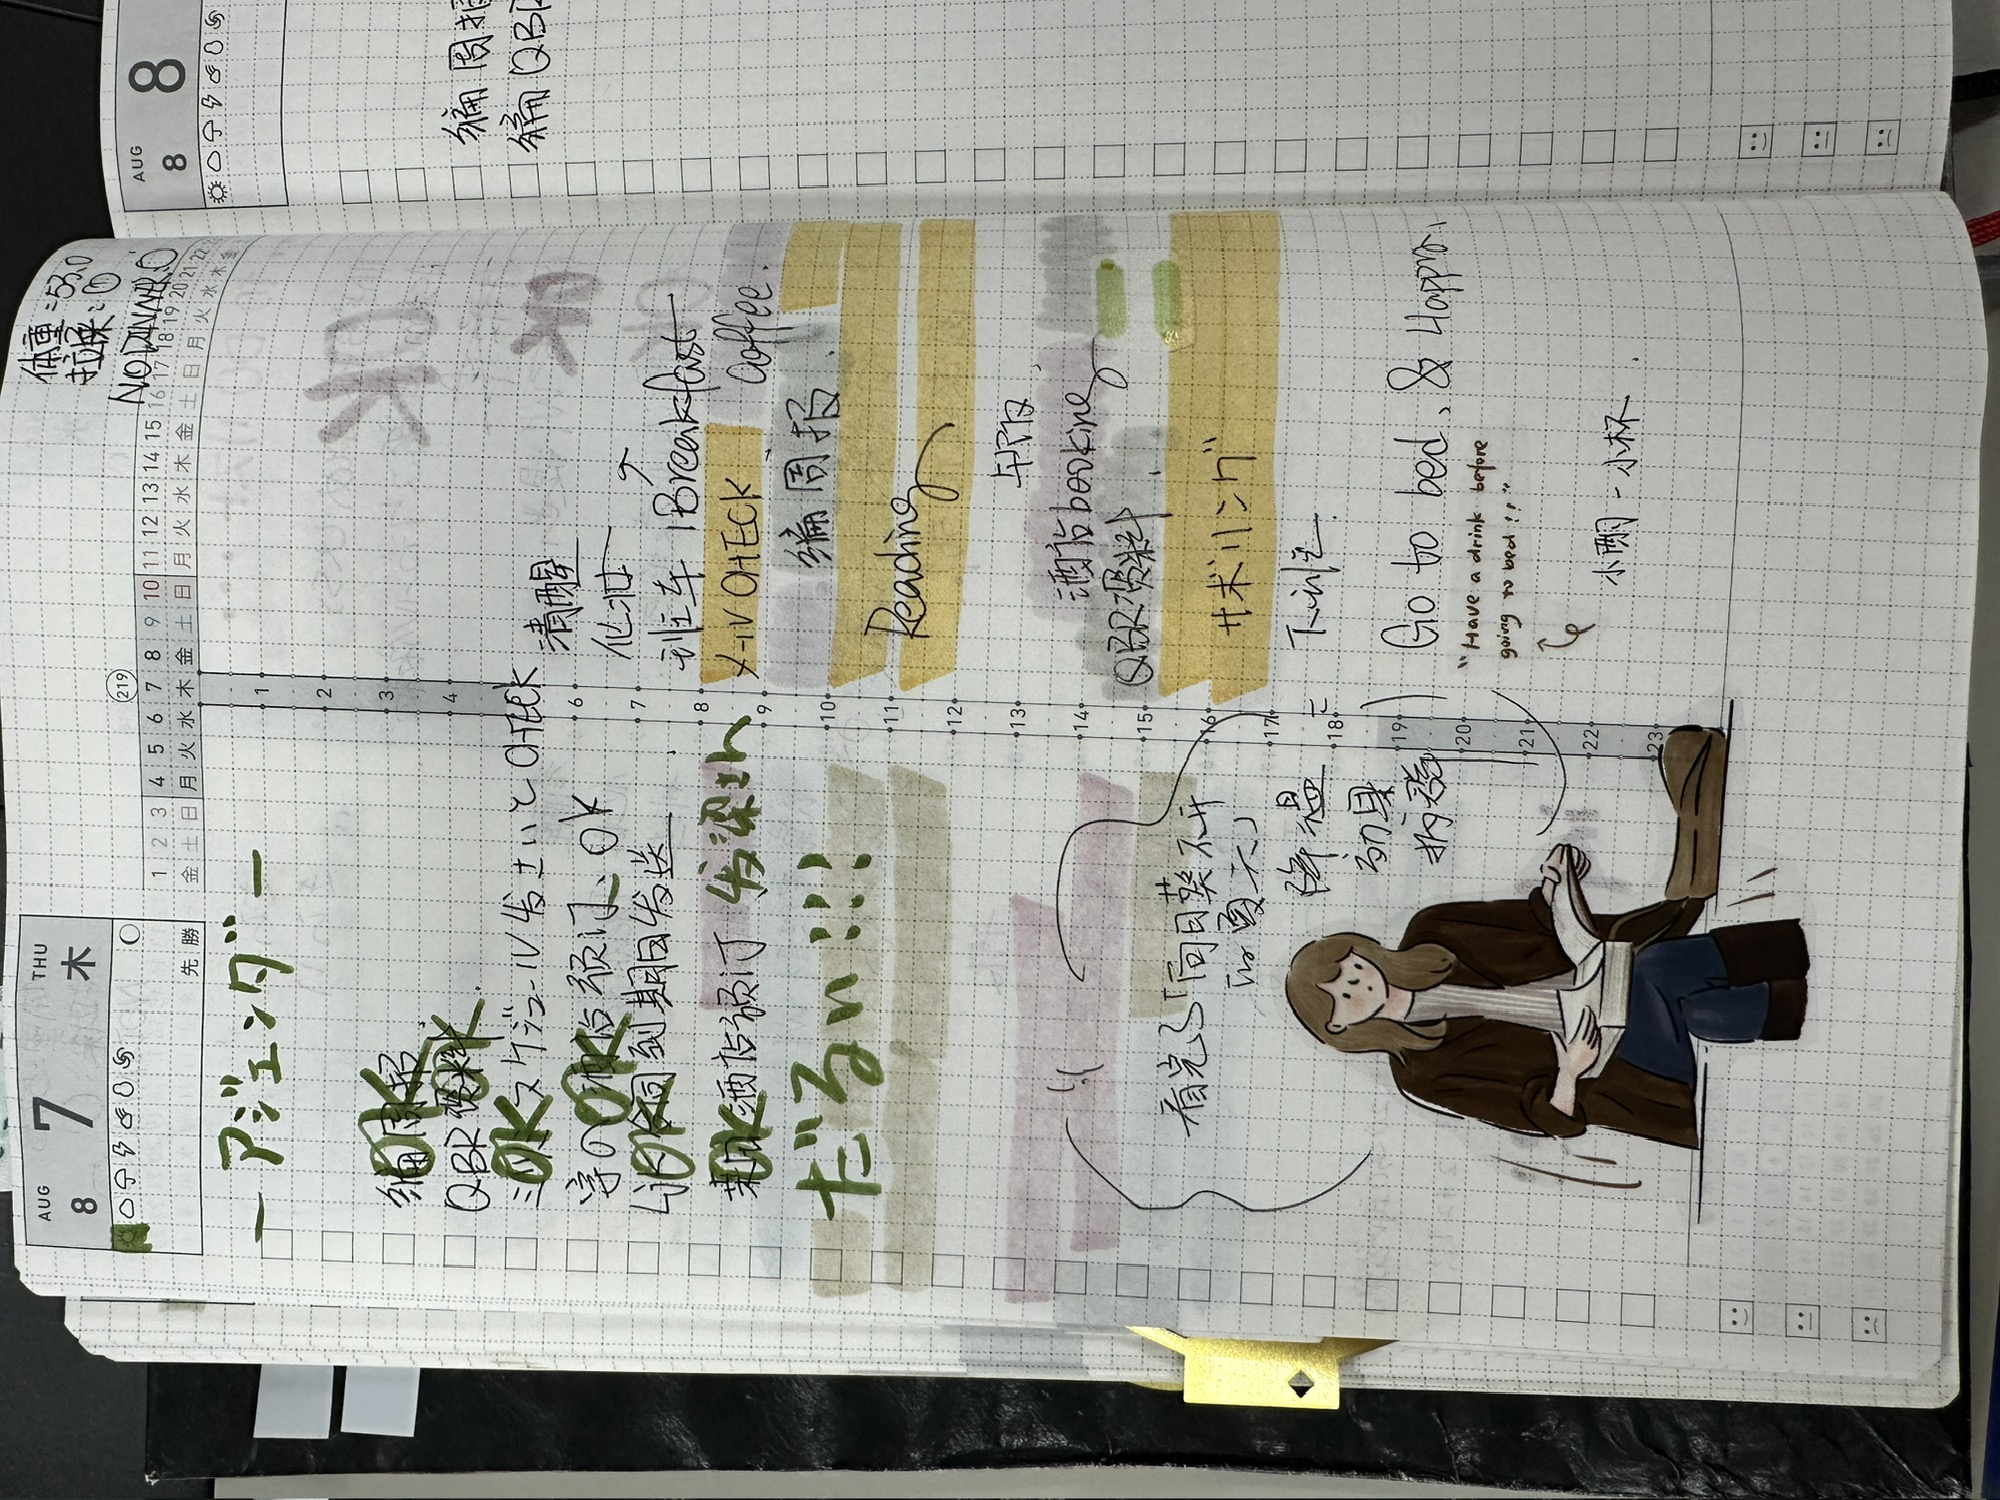 AUG
8
7
THU
木
先勝
219
1 2 3 4 5 6 7 8 9 10 11 12 13 14 15 16 17 18 19 20 21 22
金 土 日 月 火 水 木 金 土 日 月 火 水 木 金 土 日 月 火 水 木 金
体重:53.0
NO DINNER
ーアジェンダー
编周报
OK
QBR资料
OK
スケジュール发せいとCHECK
OK
酒店预订、OK
OK
合同到期日发送
OK
酒店预订
OK
だるい!!!!
1
2
3
4
6
7
8
9
10
11
12
13
14
15
16
17
18
19
20
21
22
23
清醒
化妆
班车
Breakfast
メール CHECK
Coffee.
编周报
Reading
午饭
酒店booking
QBR资料
サボリング
下班
Go to bed. & Happy.
"Have a drink before
going to bed!!"
小酌一小杯.
看完了「向日葵不开
的夏天」
降温
初具
AUG
8
8
编周报
QBR